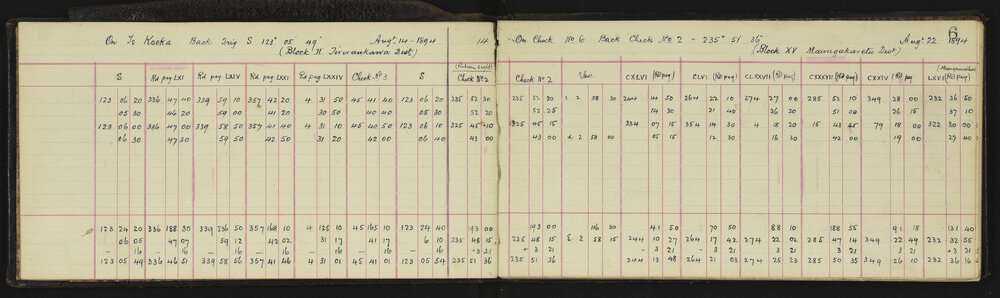 On Ts Kaeka Back Trig S 123° 05' 49" Augt 14 - 1894
(Block II Tiriraukawa Dist)
14
(Return Sight)
S Rd peg LXI Rd peg LXIV Rd peg LXXI Rd peg LXXIV Check No 3 S Check No 2
123 06 20 336 47 40 339 59 10 357 42 20 4 31 50 45 41 40 123 06 20 235 52 30
05 30 46 20 58 00 41 20 30 50 40 40 05 30 52 20
123 06 00 336 47 00 339 58 50 357 41 40 4 31 10 45 40 50 123 06 10 325 45 10
06 30 47 30 59 50 42 50 31 20 42 00 06 40 43 00
123 24 20 336 188 30 339 236 50 357 168 10 4 125 10 45 165 10 123 24 40 193 00
06 05 47 07 59 12 42 02 31 17 41 17 6 10 235 48 15
- 16 - 16 - 16 - 16 - 16 - 16 - 16 + 3 21
123 05 49 336 46 51 339 58 56 357 41 46 4 31 01 45 41 01 123 05 54 235 51 36
6
On Check No 6 Back Check No 2 - 235° 51' 36" Augt 22 1894
(Block XV Maungakaretu Dist)
Check No 2 Ver. CXLVI (Rd peg) CLVI (Rd peg) CLXXVII (Rd peg) CXXXVII (Rd peg) CXXIV (Rd peg) LXVI (Rd peg)
235 52 30 S 2 58 30 244 14 50 264 22 10 274 27 00 285 52 10 349 28 00 232 36 50
52 25 14 30 21 40 26 20 51 00 26 15 37 10
325 45 15 334 07 15 354 14 30 4 18 20 15 43 45 79 18 00 322 30 00
43 00 2 58 00 05 15 12 30 16 20 42 00 19 00 29 40
193 00 116 30 41 50 70 50 88 10 188 55 91 15 131 40
235 48 15 S 2 58 15 244 10 27 264 17 42 274 22 02 285 47 14 349 22 49 232 32 55
+ 3 21 3 21 3 21 3 21 3 21 3 21 + 3 21
235 51 36 244 13 48 264 21 03 274 25 23 285 50 35 349 26 10 232 36 16